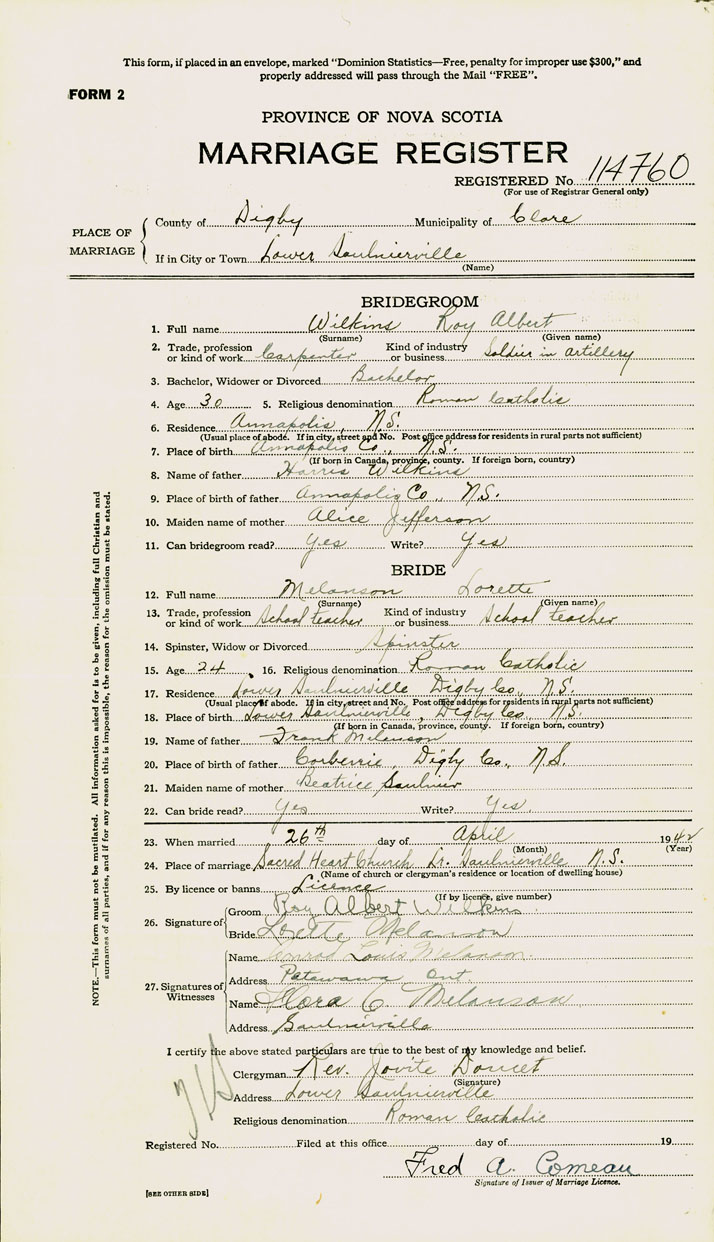 This form, if placed in an envelope, marked "Dominion Statistics—Free, penalty for improper use $300," and
properly addressed will pass through the Mail "FREE".
FORM 2
PROVINCE OF NOVA SCOTIA
MARRIAGE REGISTER
REGISTERED No. 114760
(For use of Registrar General only)
PLACE OF MARRIAGE
County of Digby Municipality of Clare
If in City or Town Lower Saulnierville
(Name)
BRIDEGROOM
1. Full name Wilkins Roy Albert
(Surname) (Given name)
2. Trade, profession or kind of work Carpenter Kind of industry or business Soldier in artillery
3. Bachelor, Widower or Divorced Bachelor
4. Age 30 5. Religious denomination Roman Catholic
6. Residence Annapolis, N.S.
(Usual place of abode. If in city, street and No. Post office address for residents in rural parts not sufficient)
7. Place of birth Annapolis Co., N.S.
(If born in Canada, province, county. If foreign born, country)
8. Name of father Harris Wilkins
9. Place of birth of father Annapolis Co., N.S.
10. Maiden name of mother Alice Jefferson
11. Can bridegroom read? Yes Write? Yes
BRIDE
12. Full name Melanson Lorette
(Surname) (Given name)
13. Trade, profession or kind of work School teacher Kind of industry or business School teacher
14. Spinster, Widow or Divorced Spinster
15. Age 24 16. Religious denomination Roman Catholic
17. Residence Lower Saulnierville Digby Co., N.S.
(Usual place of abode. If in city, street and No. Post office address for residents in rural parts not sufficient)
18. Place of birth Lower Saulnierville, Digby Co., N.S.
(If born in Canada, province, county. If foreign born, country)
19. Name of father Frank Melanson
20. Place of birth of father Corberrie, Digby Co., N.S.
21. Maiden name of mother Beatrice Saulnier
22. Can bride read? Yes Write? Yes
23. When married 26th day of April 1942
(Month) (Year)
24. Place of marriage Sacred Heart Church Lr. Saulnierville N.S.
(Name of church or clergyman's residence or location of dwelling house)
25. By licence or banns Licence
(If by licence, give number)
26. Signature of
Groom Roy Albert Wilkins
Bride Lorette Melanson
27. Signatures of Witnesses
Name Conrad Louis Melanson
Address Patawawa Ont
Name Flora C. Melanson
Address Saulnierville
I certify the above stated particulars are true to the best of my knowledge and belief.
Clergyman Rev. Jovite Doucet
(Signature)
Address Lower Saulnierville
Religious denomination Roman Catholic
Registered No. Filed at this office day of 19
Fred A. Comeau
Signature of Issuer of Marriage Licence.
[SEE OTHER SIDE]
NOTE.—This form must not be mutilated. All information asked for is to be given, including full Christian and
surnames of all parties, and if for any reason this is impossible, the reason for the omission must be stated.